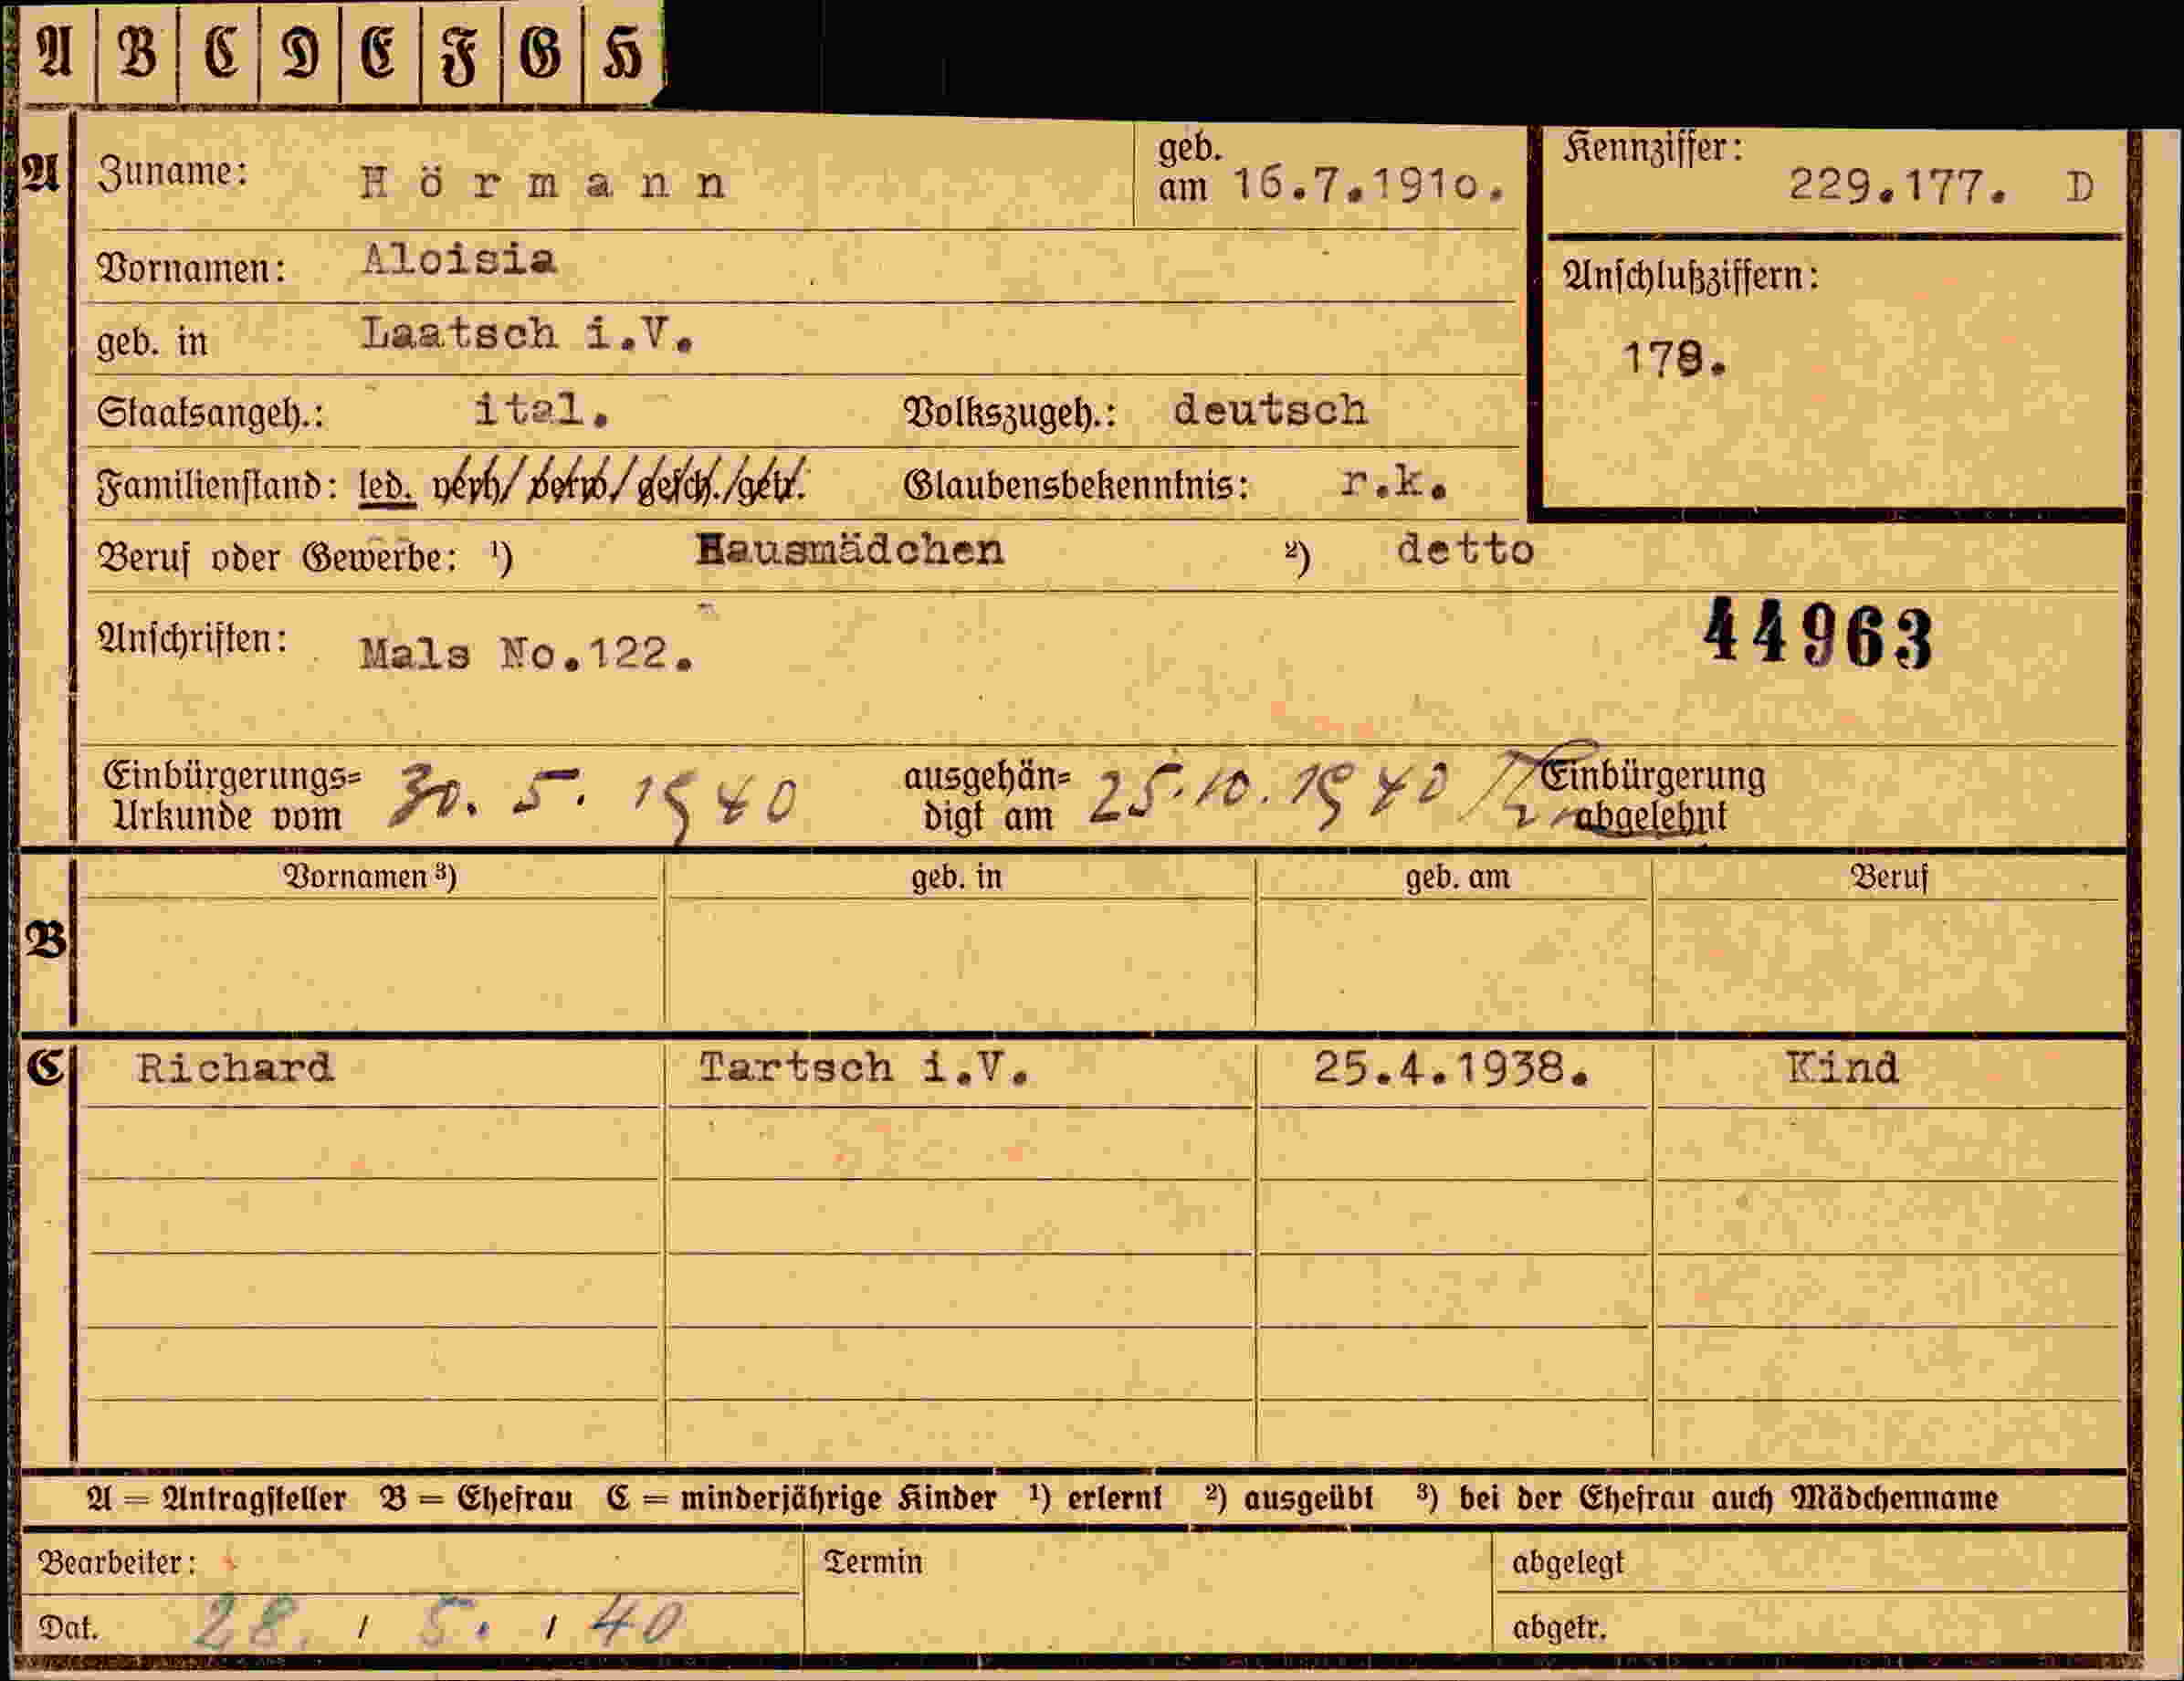 A B C D E F G H
A Zuname: Hörmann geb. am 16.7.1910. Kennziffer: 229.177. D
Vornamen: Aloisia Anschlußziffern:
geb. in Laatsch i.V. 178.
Staatsangeh.: ital. Volkszugeh.: deutsch
Familienstand: led. verh/ verw/ gesch./getr. Glaubensbekenntnis: r.k.
Beruf oder Gewerbe: ¹) Hausmädchen ²) detto
Anschriften: Mals No.122. 44963
Einbürgerungs= ausgehän= Einbürgerung
Urkunde vom 30. 5. 1940 digt am 25.10.1940 abgelehnt
Vornamen ³) geb. in geb. am Beruf
B
C Richard Tartsch i.V. 25.4.1938. Kind
A = Antragsteller B = Ehefrau C = minderjährige Kinder ¹) erlernt ²) ausgeübt ³) bei der Ehefrau auch Mädchenname
Bearbeiter: Termin abgelegt
Dat. 28. / 5. / 40 abgetr.